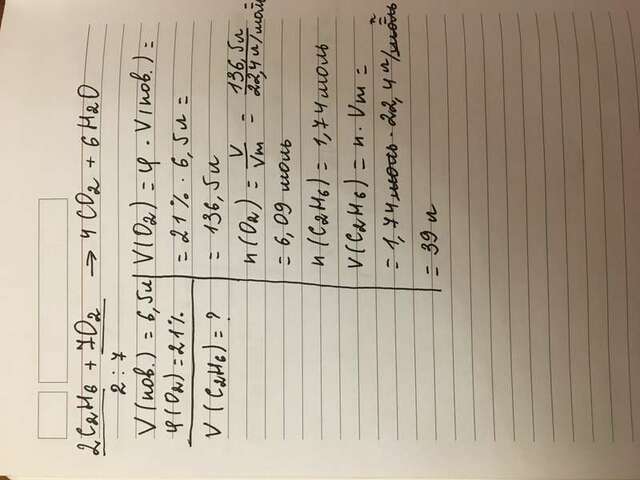 2C2H6 + 7O2 → 4CO2 + 6H2O
2 : 7
V(пов.) = 6,5л
φ(O2) = 21%
V(C2H6) = ?
V(O2) = φ · V(пов.) =
= 21% · 6,5л =
= 136,5л
n(O2) = V/Vm = 136,5л/22,4л/моль =
= 6,09 моль
n(C2H6) = 1,74 моль
V(C2H6) = n · Vm =
= 1,74 моль · 22,4 л/моль =
= 39 л